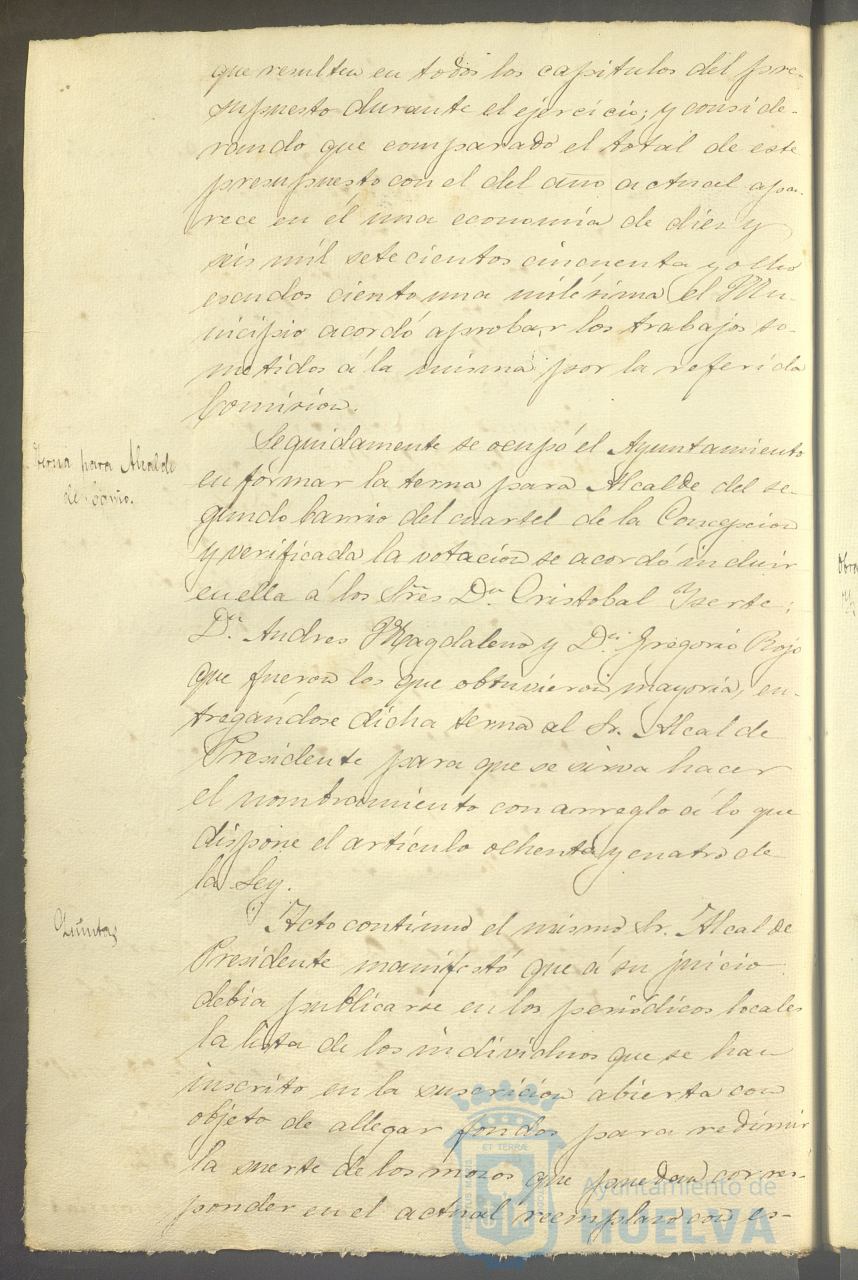 que resulten en todos los capitulos del pre-
supuesto durante el ejercicio; y conside-
rando que comparado el total de este
presupuesto con el del año actual apa-
rece en él una economía de diez y
seis mil setecientos cincuenta y ocho
escudos ciento una milésima el Mu-
nicipio acordó aprobar los trabajos so-
metidos á la misma por la referida
Comision.
Terna para Alcalde
de barrio.
Seguidamente se ocupó el Ayuntamiento
en formar la terna para Alcalde del se-
gundo barrio del cuartel de la Concepcion
y verificada la votacion se acordó incluir
en ella á los Sres Dn. Cristobal Yserte;
Dn. Andres Magdaleno y Dn. Gregorio Rojo
que fueron los que obtuvieron mayoría, en-
tregándose dicha terna al Sr. Alcalde
Presidente para que se sirva hacer
el nombramiento con arreglo á lo que
dispone el artículo ochenta y cuatro de
la Ley.
Quintas
Acto continuo el mismo Sr. Alcalde
Presidente manifestó que á su juicio
debia publicarse en los periódicos locales
la lista de los individuos que se han
inscrito en la suscricion abierta con
objeto de allegar fondos para redimir
la suerte de los mozos que puedan corres-
ponder en el actual reemplazo con es-
ET TERRÆ
Ayuntamiento de
HUELVA